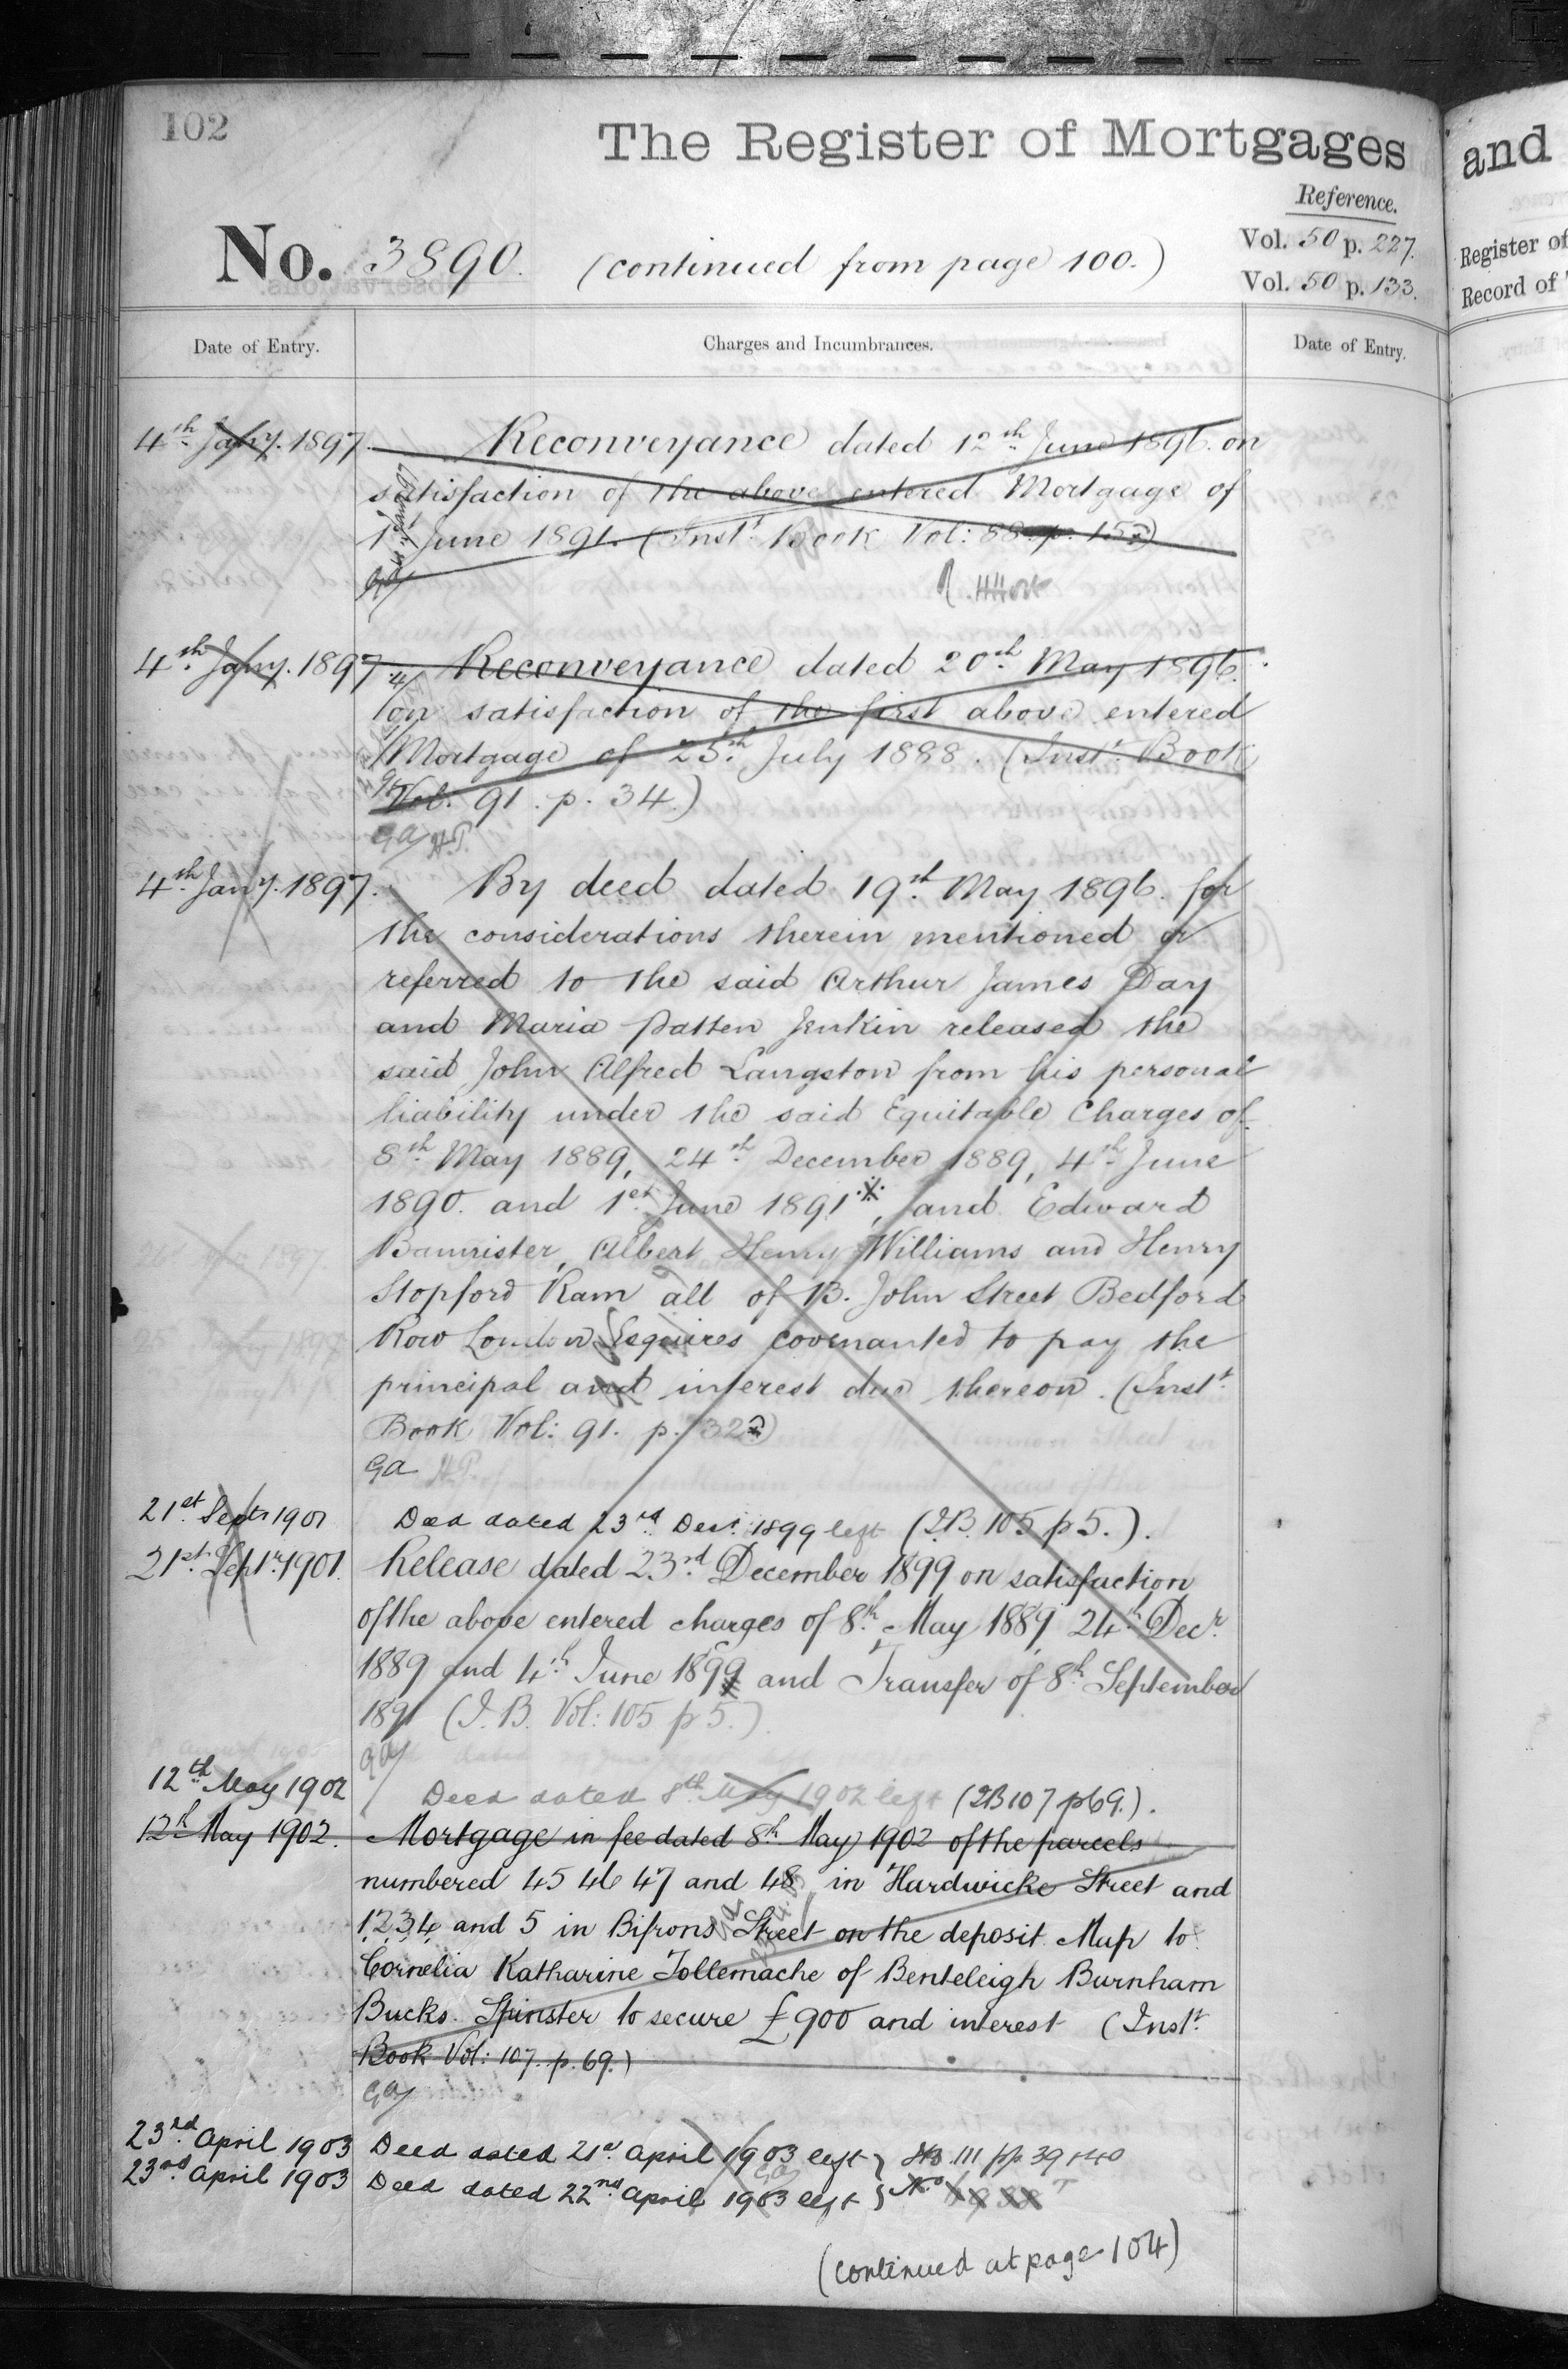 102
The Register of Mortgages
and
Reference.
No. 3890. (continued from page 100.)
Vol. 50 p. 227.
Vol. 50 p. 133.
Register of
Record of
Date of Entry.
Charges and Incumbrances.
Date of Entry.
4th Jany. 1897. Reconveyance dated 12th June 1896. on
satisfaction of the above entered Mortgage of
1st June 1891. (Inst. Book Vol: 88 p. 153)
4th Jany. 1897 Reconveyance dated 20th May 1896.
on satisfaction of the first above entered
Mortgage of 25th July 1888. (Inst. Book
Vol. 91. p. 34.)
GA HP.
4th Jany. 1897. By deed dated 19th May 1896. for
the considerations therein mentioned or
referred to the said Arthur James Day
and Maria Patten Jenkin released the
said John Alfred Langston from his personal
liability under the said Equitable Charges of
8th May 1889, 24th December 1889, 4th June
1890. and 1st June 1891, and Edward
Bannister, Albert Henry Williams and Henry
Stopford Ram all of 13. John Street Bedford
Row London Esquires covenanted to pay the
principal and interest due thereon. (Inst.
Book Vol: 91. p. 32)
GA HP.
21st Septr 1901 Deed dated 23rd Decr. 1899 left (IB. 105 p 5.).
21st Septr. 1901. Release dated 23rd December 1899 on satisfaction
of the above entered charges of 8th May 1889 24th Decr.
1889 and 4th June 1899 and Transfer of 8th September
1891 (I.B. Vol: 105 p 5.)
GA
12th May 1902 Deed dated 8th May 1902 left (IB 107 p 69.).
12th May 1902. Mortgage in fee dated 8th May 1902 of the parcels
numbered 45 46 47 and 48 in Hardwicke Street and
1.2.3.4 and 5 in Bifrons Street on the deposit Map to
Cornelia Katharine Tollemache of Benteleigh Burnham
Bucks. Spinster to secure £900 and interest (Inst.
Book Vol: 107. p. 69.)
GA
23rd April 1903 Deed dated 21st April 1903 left } IB. 111 pp. 39 + 40
23rd April 1903 Deed dated 22nd April 1903 left } No
(continued at page 104)